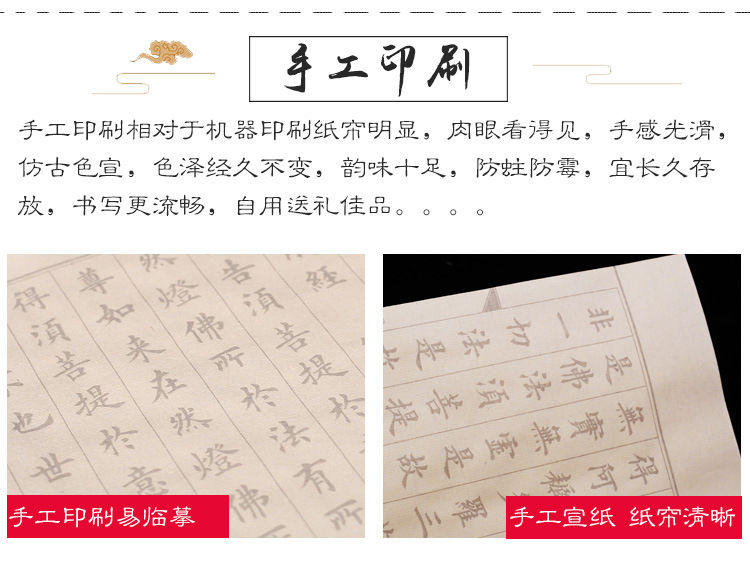 手工印刷
手工印刷相对于机器印刷纸帘明显，肉眼看得见，手感光滑，
仿古色宣，色泽经久不变，韵味十足，防蛀防霉，宜长久存
放，书写更流畅，自用送礼佳品。。。。
經
告須菩提於
然燈佛所於法有所
尊如来在然燈佛
得須菩提於意
也世
手工印刷易临摹
得阿耨羅三
無實無虛是故
是佛法須菩提
非一切法是
手工宣纸 纸帘清晰